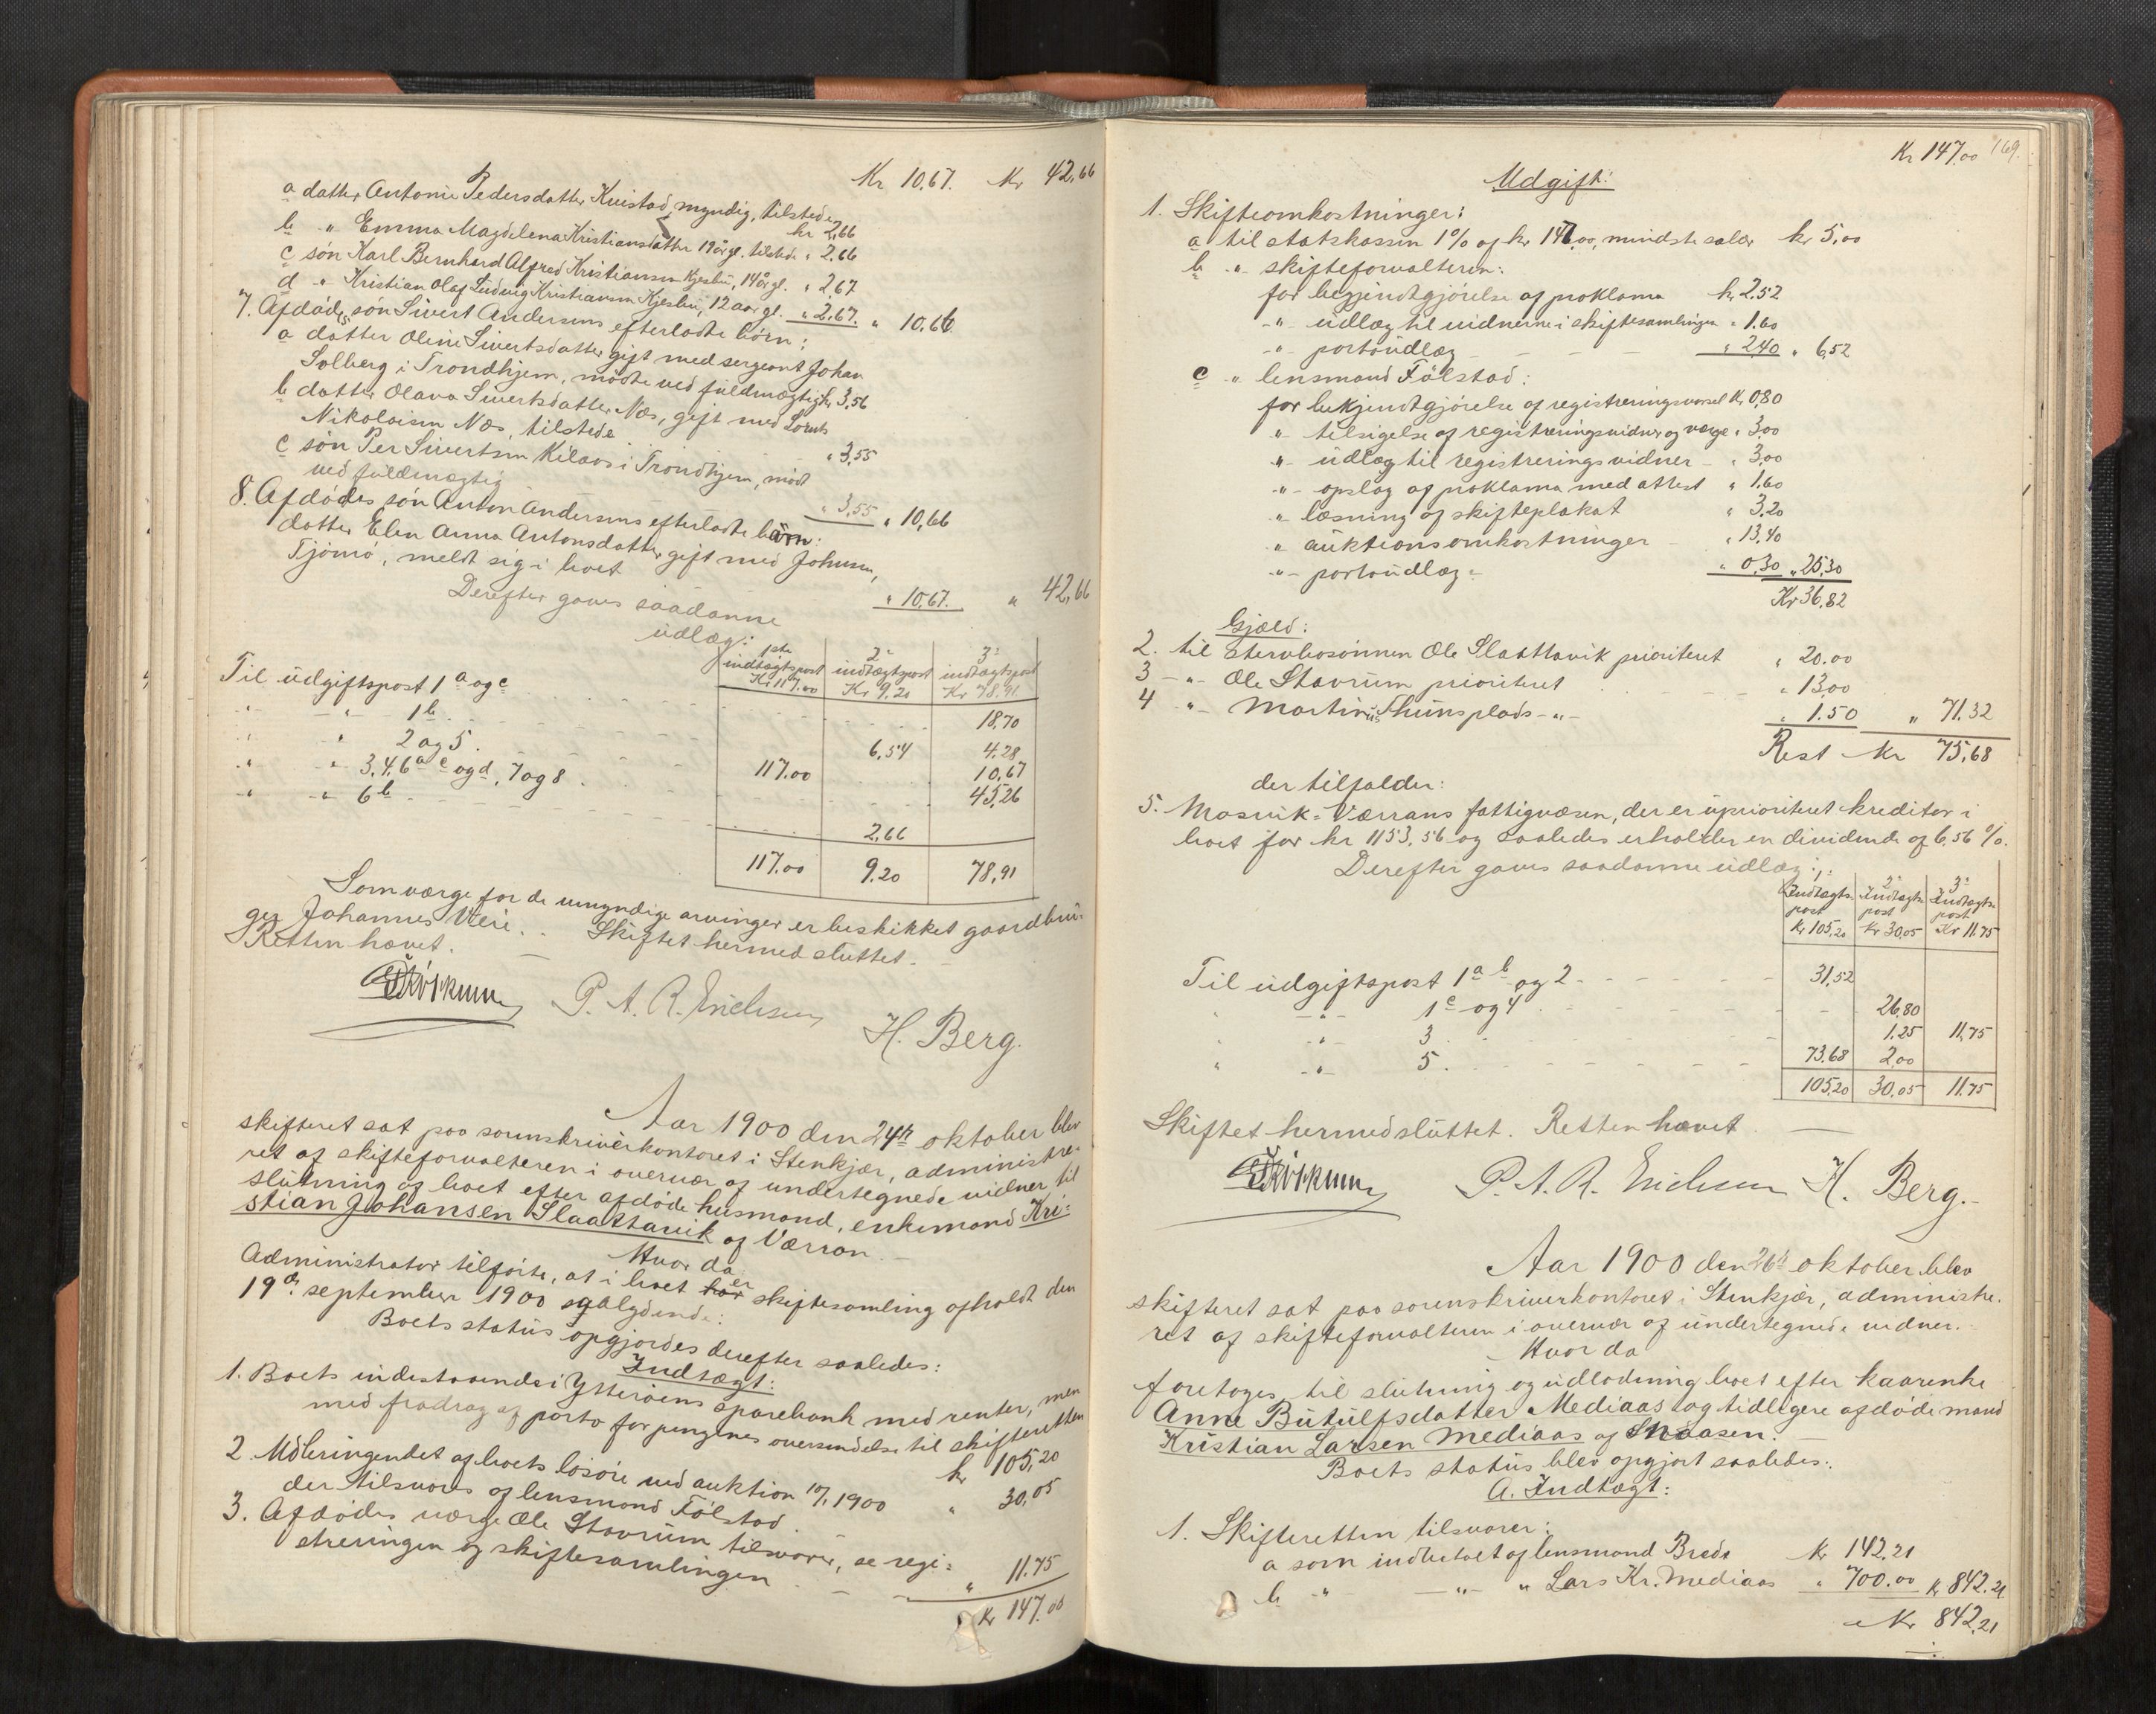 Kr 10,67. Kr 42,66
a datter Antonie Pedersdatter Kvistad, myndig, tilstede
kr 2,66
b " Emma Magdelena Kristiansdatter 19 år gl. tilstede " 2,66
c søn Karl Bernhard Alfred Kristiansen Kjesbu, 14 år gl. " 2,67
d " Kristian Olaf Ludvig Kristiansen Kjesbu, 12 aar gl. " 2,67. " 10,66
7. Afdødes søn Sivert Andersens efterladte børn:
a datter Oline Sivertsdatter gift med sergeant Johan
Solberg i Trondhjem, mødte ved fuldmægtig kr 3,56
b datter Olava Sivertsdatter Næs, gift med Lornts
Nikolaisen Næs, tilstede " 3,55
c søn Per Sivertsen Kilaas i Trondhjem, mødt
ved fuldmægtig " 3,55 " 10,66
8. Afdødes søn Anton Andersens efterladte barn:
datter Elen Anna Antonsdatter gift med Johnsen,
Tjømø, meldt sig i boet " 10,67. " 42,66
Derefter gaves saadanne
udlæg:
1ste indtægtspost Kr 117.00 2: indtægtspost Kr 9,20 3: indtægtspost Kr 78,91
Til udgiftspost 1 a og c 18,70
" " 1 b 6,54 4.28
" " 2 og 5. 117.00 10,67
" " 3,4,6 a c og d, 7 og 8 45,26
" " 6 b 2,66
117.00 9.20 78,91
Som værge for de umyndige arvinger er beskikket gaardbru-
ger Johannes Veie. Skiftet hermed sluttet.
Retten hævet.
P. A. R. Erichsen H. Berg.
Aar 1900 den 24de oktober blev
skifteret sat paa sorenskriverkontoret i Stenkjær, administre-
ret af skifteforvalteren i overvær af undertegnede vidner til
slutning af boet efter afdøde husmand, enkemand Kri-
stian Johansen Slaattavik af Værran.
Hvor da
Administrator tilførte, at i boet har er skiftesamling afholdt den
19de september 1900 sgålydende:
Boets status opgjordes derefter saaledes:
Indtægt:
1. Boets indestaaende i Ytterøens sparebank med renter, men
med fradrag af porto for pengenes oversendelse til skifteretten
kr 105,20
2. Udbringendet af boets løsøre ved auktion 10/1 1900
der tilsvares af lensmand Følstad " 30,05
3. Afdødes værge Ole Stavrum tilsvarer, se regi-
streringen og skiftesamlingen " 11.75
Kr 147.00
Kr 147.00 169.
Udgift:
1. Skifteomkostninger:
a til statskassen 1% af kr 147,00, mindste salær kr 5,00
b " skifteforvalteren:
for bekjendtgjørelse af proklama kr 2,52
-"- udlæg til vidnerne i skiftesamlingen " 1.60
-"- portoudlæg " 2,40 " 6,52
c " lensmand Følstad:
for bekjendtgjørelse af registreringsvarsel Kr 0,80
" tilsigelse af registreringsvidner og værge " 3,00
-"- udlæg til registreringsvidner " 3,00
-"- opslag af proklama med attest " 1,60
" læsning af skifteplakat " 3,20
" auktionsomkostninger " 13,40
-"- portoudlæg " 0,30 " 25,30
Kr 36,82
Gjæld:
2. til stervbosønnen Ole Slaattavik prioriteret " 20.00
3 -"- Ole Stavrum prioriteret " 13,00
4 -"- Martinus Thunsplads -"- " 1.50 " 71.32
Rest Kr 75,68
der tilfalder:
5. Mosvik-Værrans fattigvæsen, der er uprioriteret kreditor i
boet for kr 1153,56 og saaledes erholder en dividende af 6,56 %.
Derefter gaves saadanne udlæg:
1: Indtægtspost Kr 105,20 2: Indtægtspost Kr 30,05 3: Indtægtspost Kr 11.75
Til udgiftspost 1 a b og 2 31,52
" -"- 1 c og 4 26,80
" -"- 3 1.25 11,75
" -"- 5. 73,68 2,00
105,20 30,05 11.75
Skiftet hermed sluttet. Retten hævet.
P. A. R. Erichsen H. Berg.
Aar 1900 den 26de oktober blev
skifteret sat paa sorenskriverkontoret i Stenkjær, administre-
ret af skifteforvalteren i overvær af undertegnede vidner.
Hvor da
foretoges til slutning og udlodning boet efter kaarenke
Anne Butulfsdatter Mediaas og tidligere afdøde mand
Kristian Larsen Mediaas af Snaasen.
Boets status blev opgjort saaledes:
A. Indtægt:
1. Skifteretten tilsvarer:
a som indbetalt af lensmand Brede Kr 142,21
b " -"- " Lars Kr. Mediaas " 700.00 Kr 842,21
Kr 842,21